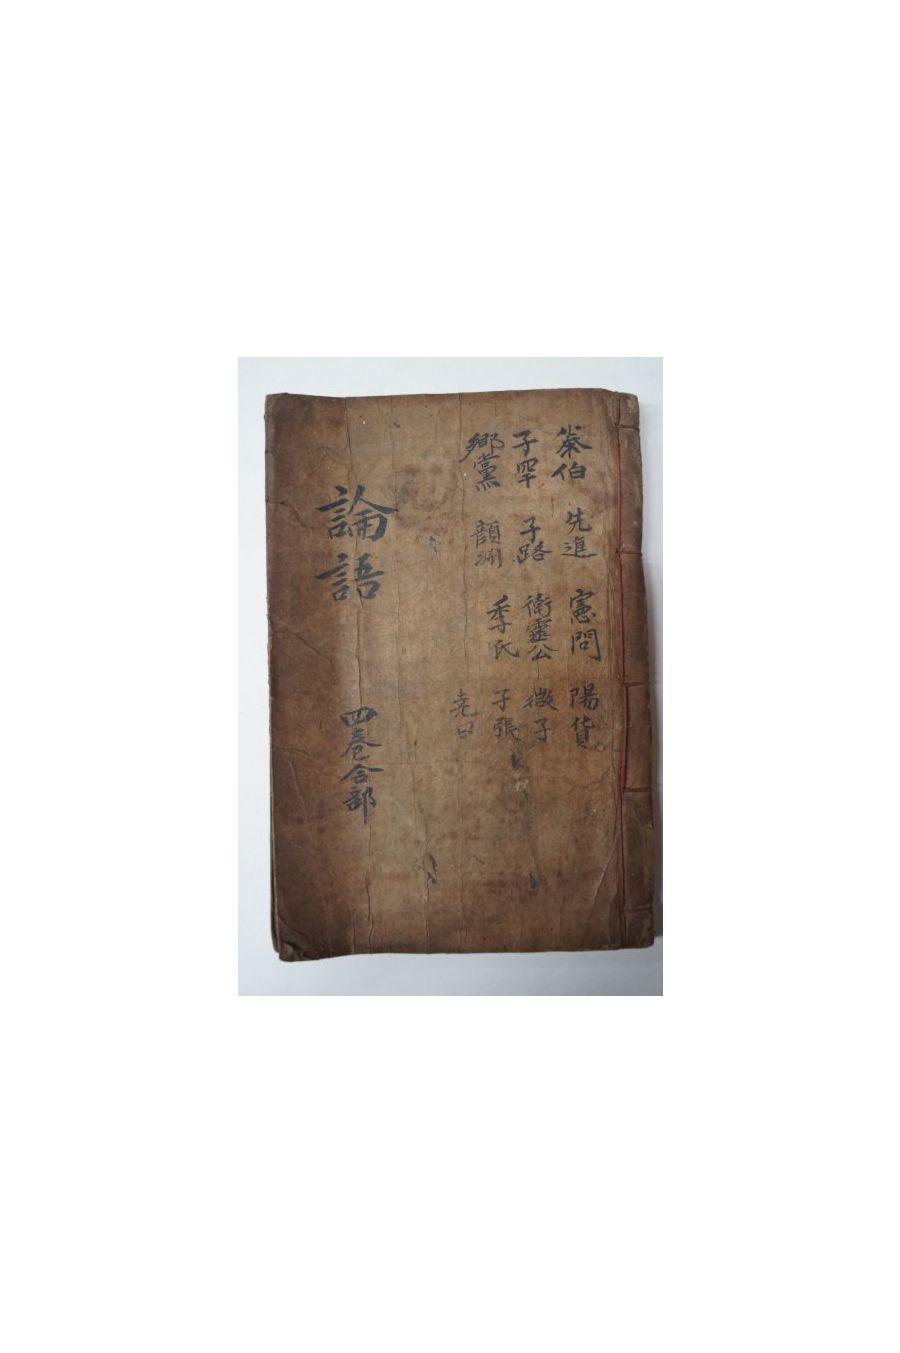 泰伯 先進 憲問 陽貨
子罕 子路 衛靈公 微子
鄕黨 顔淵 季氏 子張
堯曰
論語 四卷合部